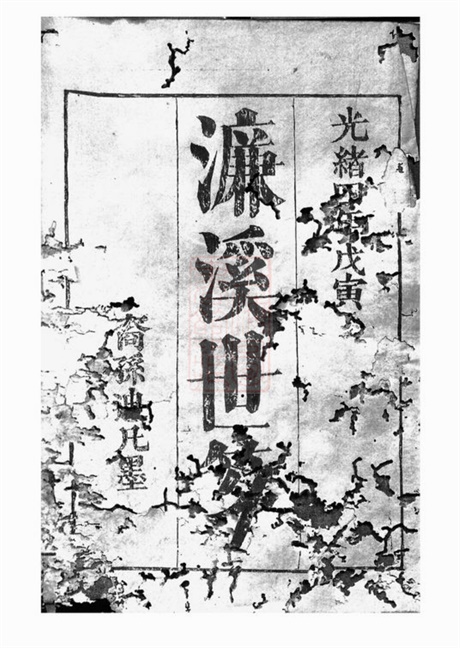 光緒四年戊寅
濂溪世
裔孫山凡墨